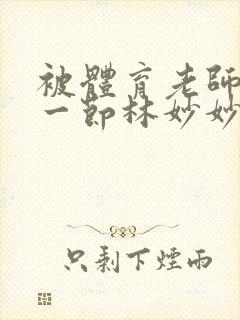 被體育老師
一節林妙妙
只剩下煙雨